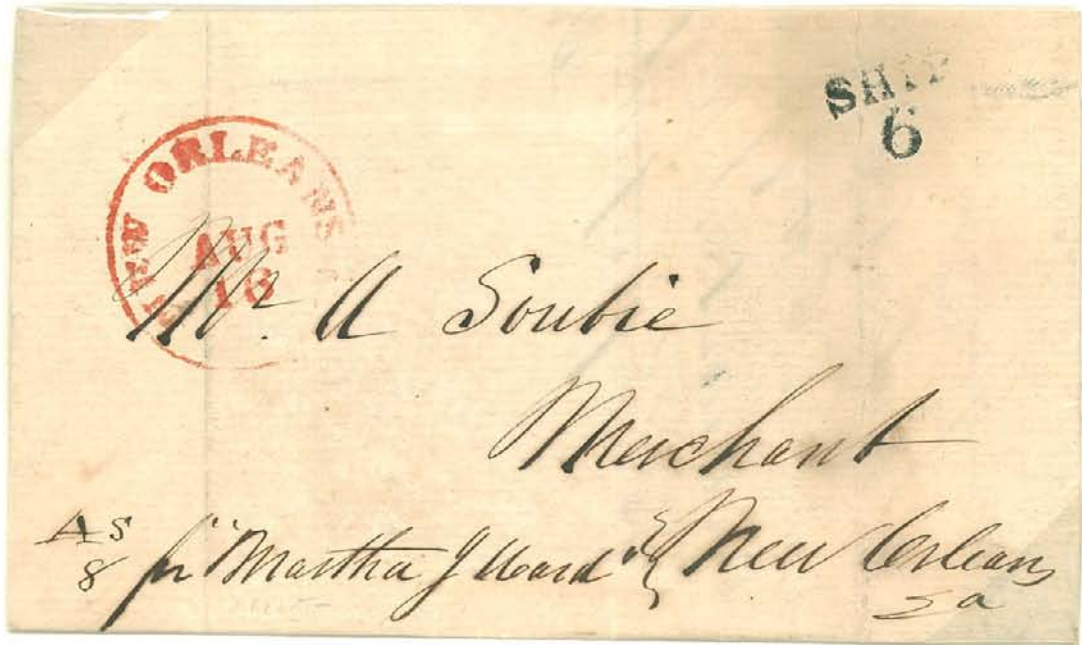 SHIP
6
NEW ORLEANS
AUG
16
Mr. A Soubie
Merchant
New Orleans
La
AS
8
pr "Martha J Ward"